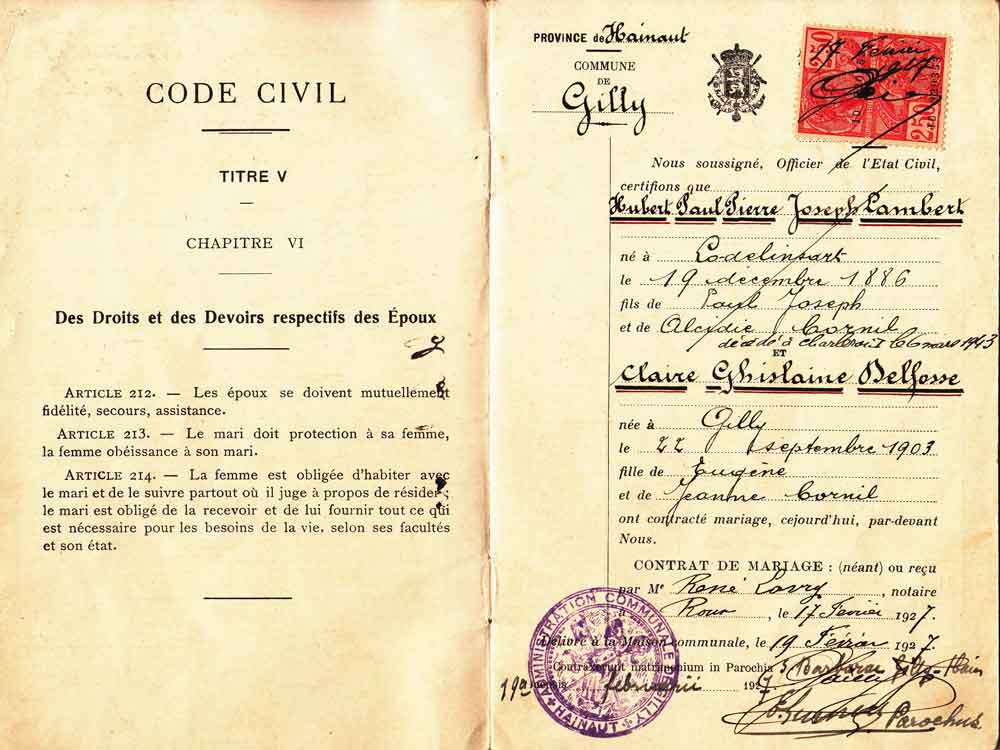 CODE CIVIL
TITRE V
CHAPITRE VI
Des Droits et des Devoirs respectifs des Époux
ARTICLE 212. — Les époux se doivent mutuellement
fidélité, secours, assistance.
ARTICLE 213. — Le mari doit protection à sa femme,
la femme obéissance à son mari.
ARTICLE 214. — La femme est obligée d'habiter avec
le mari et de le suivre partout où il juge à propos de résider ;
le mari est obligé de la recevoir et de lui fournir tout ce qui
est nécessaire pour les besoins de la vie, selon ses facultés
et son état.
PROVINCE de Hainaut
COMMUNE
DE
Gilly
17 Février
Nous soussigné, Officier de l'Etat Civil,
certifions que
Hubert Paul Pierre Joseph Lambert
né à Lodelinsart
le 19 décembre 1886
fils de Paul Joseph
et de Alcidie Cornil
décédé à Charleroi le 6 mars 1943
ET
Claire Ghislaine Delfosse
née à Gilly
le 22 septembre 1903
fille de Eugène
et de Jeanne Cornil
ont contracté mariage, cejourd'hui, par-devant
Nous.
CONTRAT DE MARIAGE : (néant) ou reçu
par Me René Lavry, notaire
à Roux, le 17 Février 1927.
Délivré à la Maison communale, le 19 Février 1927.
Contraxerunt matrimonium in Parochia S Barbarae
19a mensis februarii 1927
Parochus
ADMINISTRATION COMMUNALE GILLY
HAINAUT